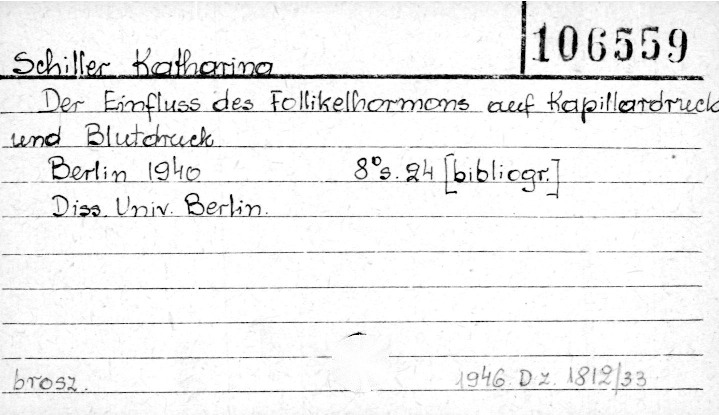 106559
Schiller Katharina
Der Einfluss des Follikelhormons auf Kapillardruck
und Blutdruck
Berlin 1940 8° s. 24 [bibliogr.]
Diss. Univ. Berlin.
brosz. 1946. Dz. 1812/33